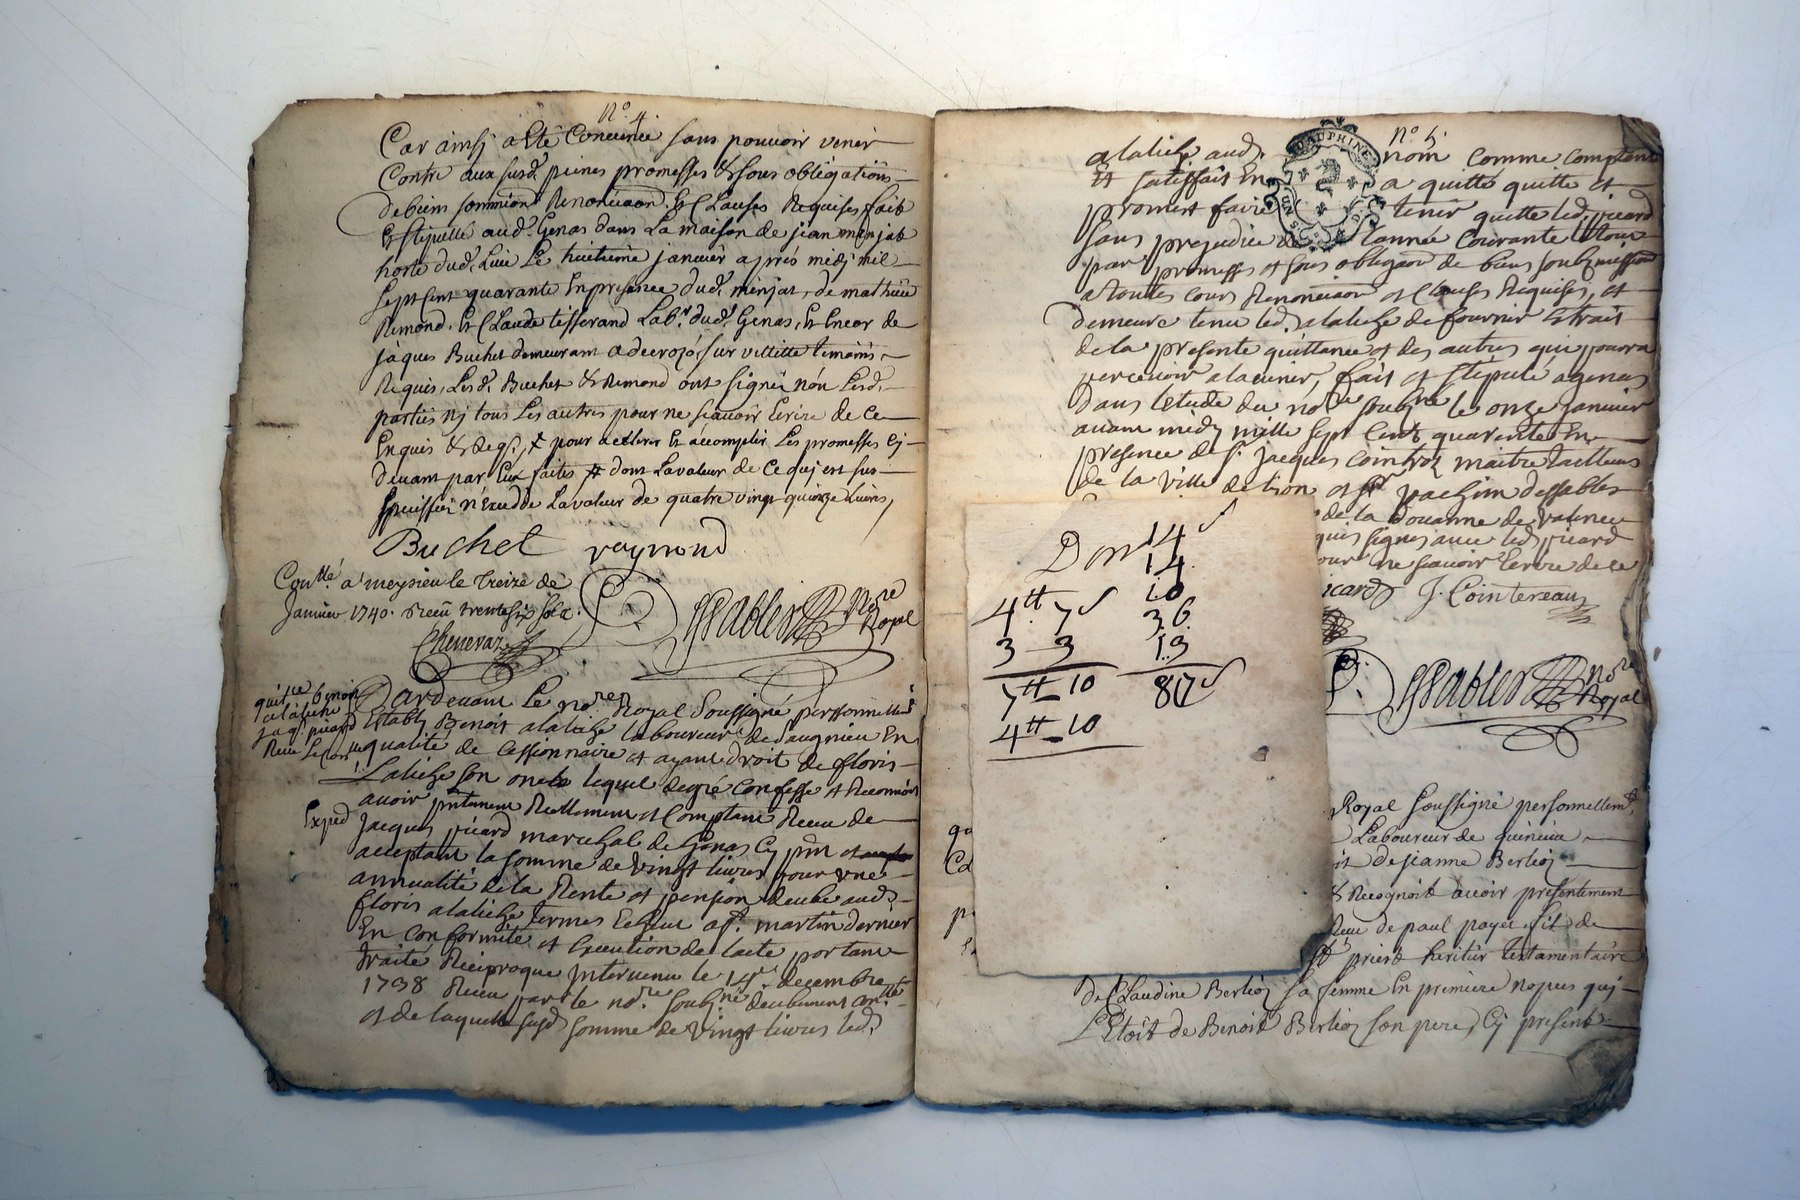 N.º 4
Car ainsi a été convenu sans pouvoir venir
Contre aux susd. peines promesses & sous obligations
de biens soumiõn Renonciaon & Clauses Requises fait
& stipullé aud. Genas dans La maison de jean menjat
horte dud. Lieu Le huitieme janvier apres medj mil
sept cent quarante En presence dud. minjat, de mathieu
Rimond, & Claude tisserand Lab.r dud. Genas, & Encor de
jâques Buchet demeurant a decrozo sur villitte temoins
Requis, Lesd. Buchet & Rimond ont signé nón Lesd.
parties nj tous Les autres pour ne sçavoir Ecrire de ce
Enquis & Reqs., pour acelerer & accomplir Les promesses cj
devant par Eux faites dont La valeur de ce quj est sus
specifiéé n'Excedde La valeur de quatre vingt quinze Livres,
Buchet raymond
Con.llé a meysieu le treize de
Janvier 1740. Receu trente six sols.
Cheneraz
Nre
Royal
quit.ce benoit
alaliche
jaq. picard
Pardevant Le no.re Royal Soussigné personnellem.t
Etably Benoit alaliche laboureur de Saugnieu En
qualité de Cessionnaire et ayant droit de floris
Laliche son oncle lequel degré Confesse et Reconnoit
avoir p̃ntement Reellement et Comptant Receu de
Exped
Jacques picard marechal de Genas Cy p̃nt et
acceptant la somme de vingt livres pour une
annualité de la Rente et pension deube aud.
floris alaliche termes Echeu a st. martin dernier
En conformité et Execution de l'acte portant
traité Reciproque Intervenu le 14.e decembre
1738 Receu par le no.re soub.né deubement con.llé
et de laquelle susd somme de vingt livres led.
DAUPHINE
n.º 5.
alaliche aud. nom comme comptant
et satisfait En a quitté quitte et
promet faire tenir quitte led. picard
sans prejudice de l'année Courante Le tout
par promesses et sous obligaõn de biens soubzmission
a toutes cours Renonciaõn et Clauses Requises, et
demeure tenu led. alaliche de fournir Extrait
de la presente quittance et des autres que pourra
percevoir a l'avenir, fait et stipulé a genas
dans l'etude du no.re soub.né le onze janvier
avant midy mille sept Cent quarente En
presence de s.r jacques cointroz maitre tailleur
de la ville de lion et s.r joachim dessables
de la Douanne de valence
quis signes avec led. picard
pour ne sçavoir Ecrire de ce
icard J. Cointereaux
no.re
Royal
Don 14
14
10
4tt 7 36
3 3 13
7tt 10 87
4tt 10
Royal soussigné personnellem.t
Laboureur de
it de jeanne Berlioz
& Recognoit avoir presentement
Receu de paul payet fil de
st priest heritier testamentaire
de Claudine Berlioz sa femme En premiere nopces quj
L'Etoit de Benoit Berlioz son pere, Cy present